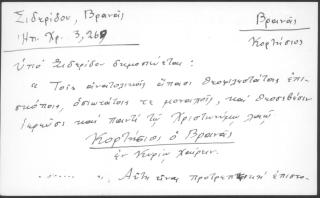 Σιδερίδου, Βρανάς
Ἠπ. Χρ. 3, 269
Βρανάς
Κορτήσιος
Ὑπό Σιδερίδου δημοσιεύεται:
« Τοῖς ἀνατολικοῖς ἅπασι θεοφιλεστάτοις ἐπι-
σκόποις, ὁσιωτάτοις τε μοναχοῖς, καί θεοσεβέσιν
ἱερεῦσι καί παντί τῷ Χριστωνύμῳ λαῷ
Κορτήσιος ὁ Βρανᾶς
ἐν Κυρίῳ χαίρειν.
Αὕτη εἶναι προτρεπτική ἐπιστο-